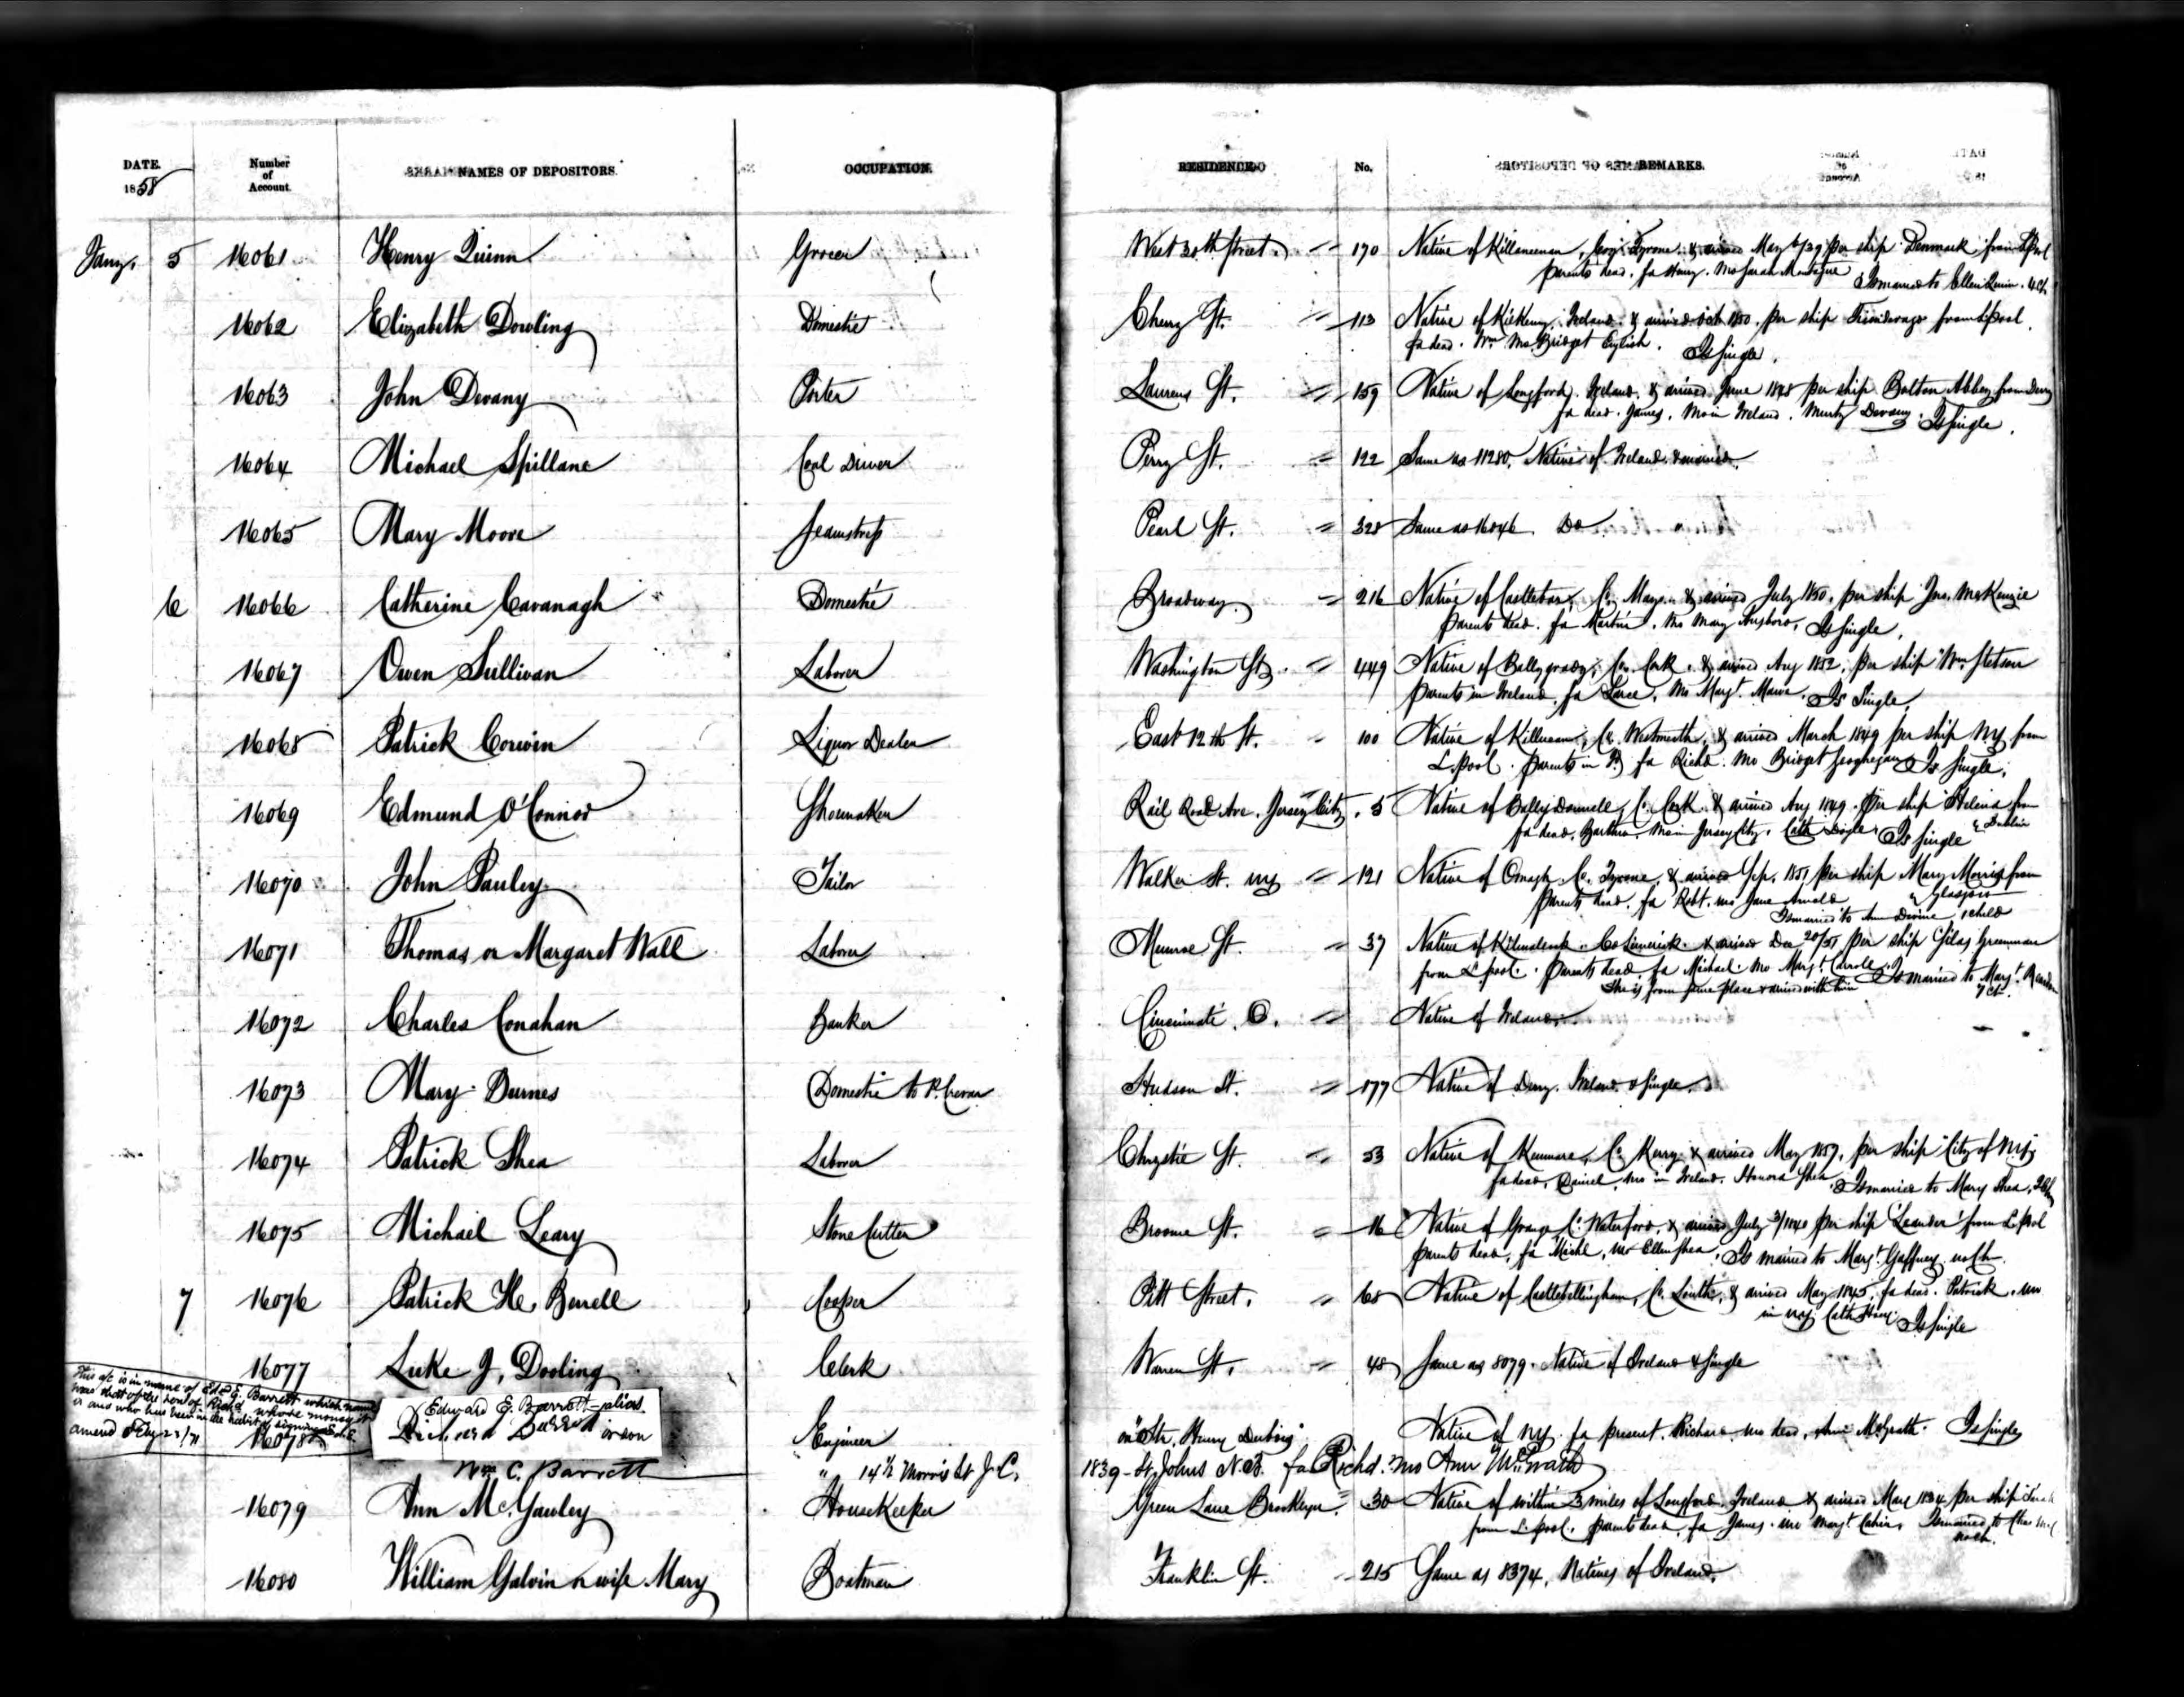 DATE. Number of Account. NAMES OF DEPOSITORS. OCCUPATION. RESIDENCE No. REMARKS.
1858
Jany. 5 16061 Henry Quinn Grocer West 30th Street 170 Native of Killaneman, Coy. Tyrone & arrived May 6/39 per ship Denmark from Lpool
parents dead. fa Henry. mo Sarah Montague Is married to Ellen Quinn. 4 ch
16062 Elizabeth Dowling Domestic Cherry St. 113 Native of Kilkenny, Ireland & arrived Oct 1850. per ship from Lpool.
fa dead. Wm Mo Bridget English. Is single.
16063 John Devany Porter Laurens St. 159 Native of Longford, Ireland, & arrived June 1848 per ship Bolton Abbey from Derry
fa dead. James. Mo in Ireland. Devany. Is single.
16064 Michael Spillane Coal Driver Perry St. 122 Same as 11280. Native of Ireland & married.
16065 Mary Moore Seamstress Pearl St. 328 Same as 16046 Do
6 16066 Catherine Cavanagh Domestic Broadway. 216 Native of Castlebar, Co. Mayo. & arrived July 1850. per ship Jno. McKenzie
parents dead. fa Martin. Mo Mary Is single.
16067 Owen Sullivan Laborer Washington St. 449 Native of Co. Cork. & arrived Aug 1852, per ship Wm Stetson
parents in Ireland. fa Mo Margt. Is Single.
16068 Patrick Corwin Liquor Dealer East 12th St. 100 Native of Co. Westmeath, & arrived March 1849 per ship NY from
L.pool. parents in fa Richd. Mo Bridget Geoghegan Is Single.
16069 Edmund O'Connor Shoemaker Rail Road Ave. Jersey City. 5 Native of Co. Cork & arrived Aug 1849. per ship Helena from
Dublin
fa dead, Mo in Jersey City. Cath Doyle Is Single
16070 John Pauley Tailor Walker St. NY 121 Native of Omagh Co. Tyrone, & arrived Sep. 1851 per ship Mary Morris from
Glasgow
parents dead. fa Robt. mo Jane Arnold
Is married to Ann Devine 1 child
16071 Thomas or Margaret Wall Laborer Munroe St. 37 Native of Co Limerick. & arrived Dec 20/51 per ship Silas Greenman
from L.pool. parents dead. fa Michael. Mo Margt. Carroll. Is married to Margt.
She is from same place & arrived with him 7 ch.
16072 Charles Conahan Banker Cincinnati. O. Native of Ireland.
16073 Mary Burnes Domestic to P. Hudson St. 177 Native of Derry. Ireland & single.
16074 Patrick Shea Laborer Chrystie St. 53 Native of Kenmare, Co. Kerry & arrived May 1857, per ship City of
fa dead, Daniel, mo in Ireland. Honora Shea. Is married to Mary Shea,
16075 Michael Leary Stone Cutter Broome St. 16 Native of Grange Co. Waterford, & arrived July 3/1840 per ship Leander from L.pool
parents dead, fa Michl, mo Ellen Shea. Is married to Margt. Gaffney no Ch.
7 16076 Patrick H. Burell Cooper Pitt Street. 68 Native of Castlebellingham, Co. Louth, & arrived May 1845, fa dead. Patrick. mo
in NY Cath Is single
16077 Luke J. Dooling Clerk Warren St. 48 Same as 8079. Native of Ireland & single
This a/c is in name of Edwd E. Barrett which name
was that of the son of Richd whose money it
is and who has been in the habit of signing
amend Feby 23/71
Edward E. Barrett - alias.
16078 Richard Barrett or son Engineer on Str. Henry Native of NY. fa present. Richard. mo dead, Ann McGrath. Is single
Wm C. Barrett " 14 1/2 Morris St J. C. 1839 - St. Johns N.B. fa Richd. mo Ann McGrath
16079 Ann McGauley Housekeeper Green Lane Brooklyn. 30 Native of within 3 miles of Longford, Ireland & arrived May 1834 per ship
from L.pool. parents dead. fa James. mo Margt. Is married to
no ch.
16080 William Galvin or wife Mary Boatman Franklin St. 215 Same as 8374, Natives of Ireland.